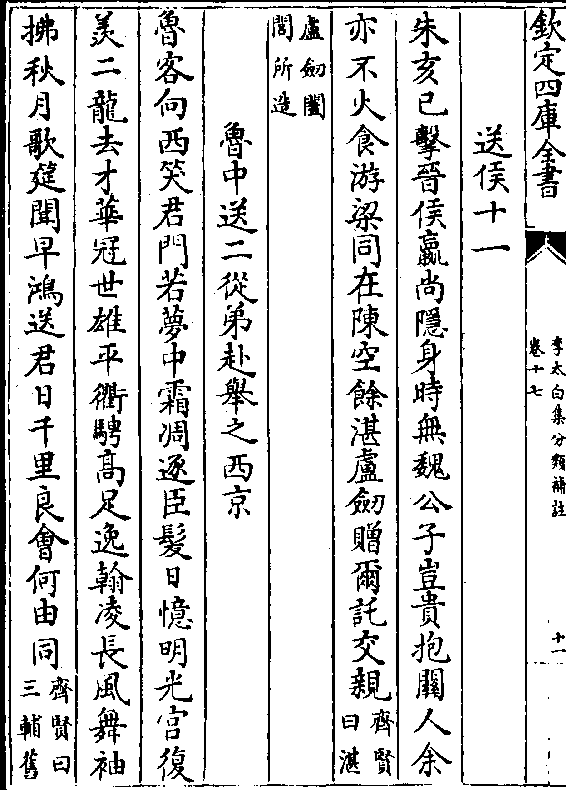 欽定四庫全書
李太白集分類補註
卷十七
十一
送侯十一
朱亥已擊晉侯嬴尚隱身時無魏公子豈貴抱關人余
亦不火食游梁同在陳空餘湛盧劒贈爾託交親齊賢
曰湛
盧劒闔
閭所造
魯中送二從弟赴舉之西京
魯客向西笑君門若夢中霜凋逐臣髮日憶明光宫復
羡二龍去才華冠世雄平衢騁高足逸翰凌長風舞袖
拂秋月歌筵聞早鴻送君日千里良會何由同齊賢曰
三輔舊